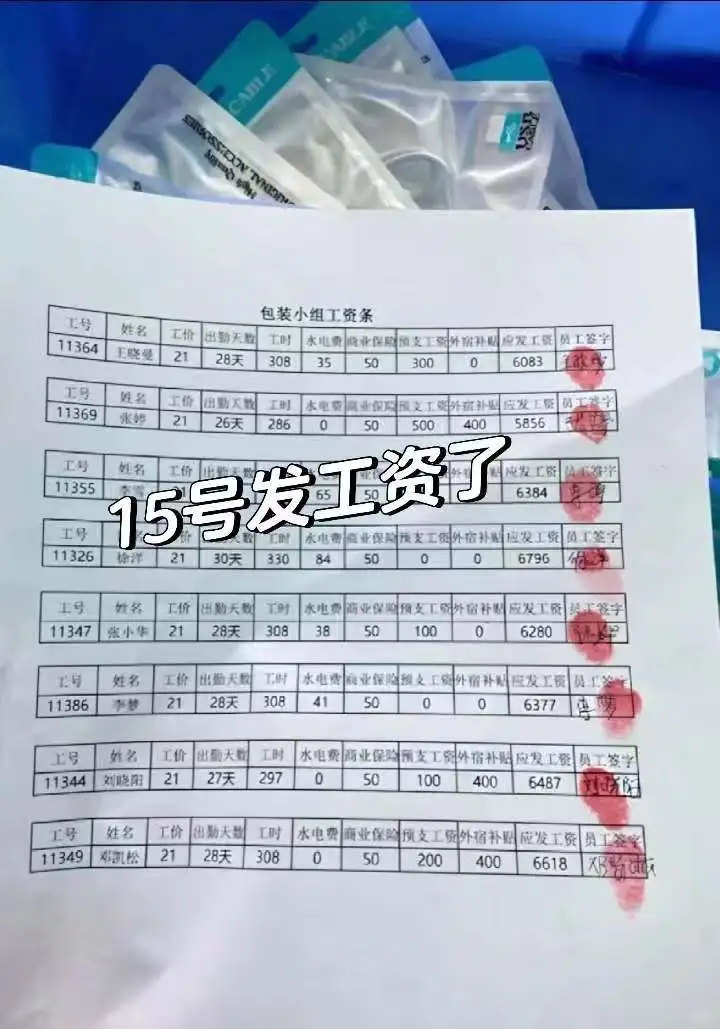 CABLE
CABLE
High Quality
USB数
包装小组工资条
工号 姓名 工价 出勤天数 工时 水电费 商业保险 预支工资 外宿补贴 应发工资 员工签字
11364 王晓曼 21 28天 308 35 50 300 0 6083
工号 姓名 工价 出勤天数 工时 水电费 商业保险 预支工资 外宿补贴 应发工资 员工签字
11369 张婷 21 26天 286 0 50 500 400 5856
工号 姓名 外宿补贴 应发工资 员工签字
11355 李雪 65 50 6384 李雪
15号发工资了
工号 姓名 工价 出勤天数 工时 水电费 商业保险 预支工资 外宿补贴 应发工资 员工签字
11326 徐洋 21 30天 330 84 50 0 0 6796 徐洋
工号 姓名 工价 出勤天数 工时 水电费 商业保险 预支工资 外宿补贴 应发工资 员工签字
11347 张小华 21 28天 308 38 50 100 0 6280
工号 姓名 工价 出勤天数 工时 水电费 商业保险 预支工资 外宿补贴 应发工资 员工签字
11386 李梦 21 28天 308 41 50 0 0 6377 李梦
工号 姓名 工价 出勤天数 工时 水电费 商业保险 预支工资 外宿补贴 应发工资 员工签字
11344 刘晓阳 21 27天 297 0 50 100 400 6487 刘晓阳
工号 姓名 工价 出勤天数 工时 水电费 商业保险 预支工资 外宿补贴 应发工资 员工签字
11349 邓凯松 21 28天 308 0 50 200 400 6618 邓凯松